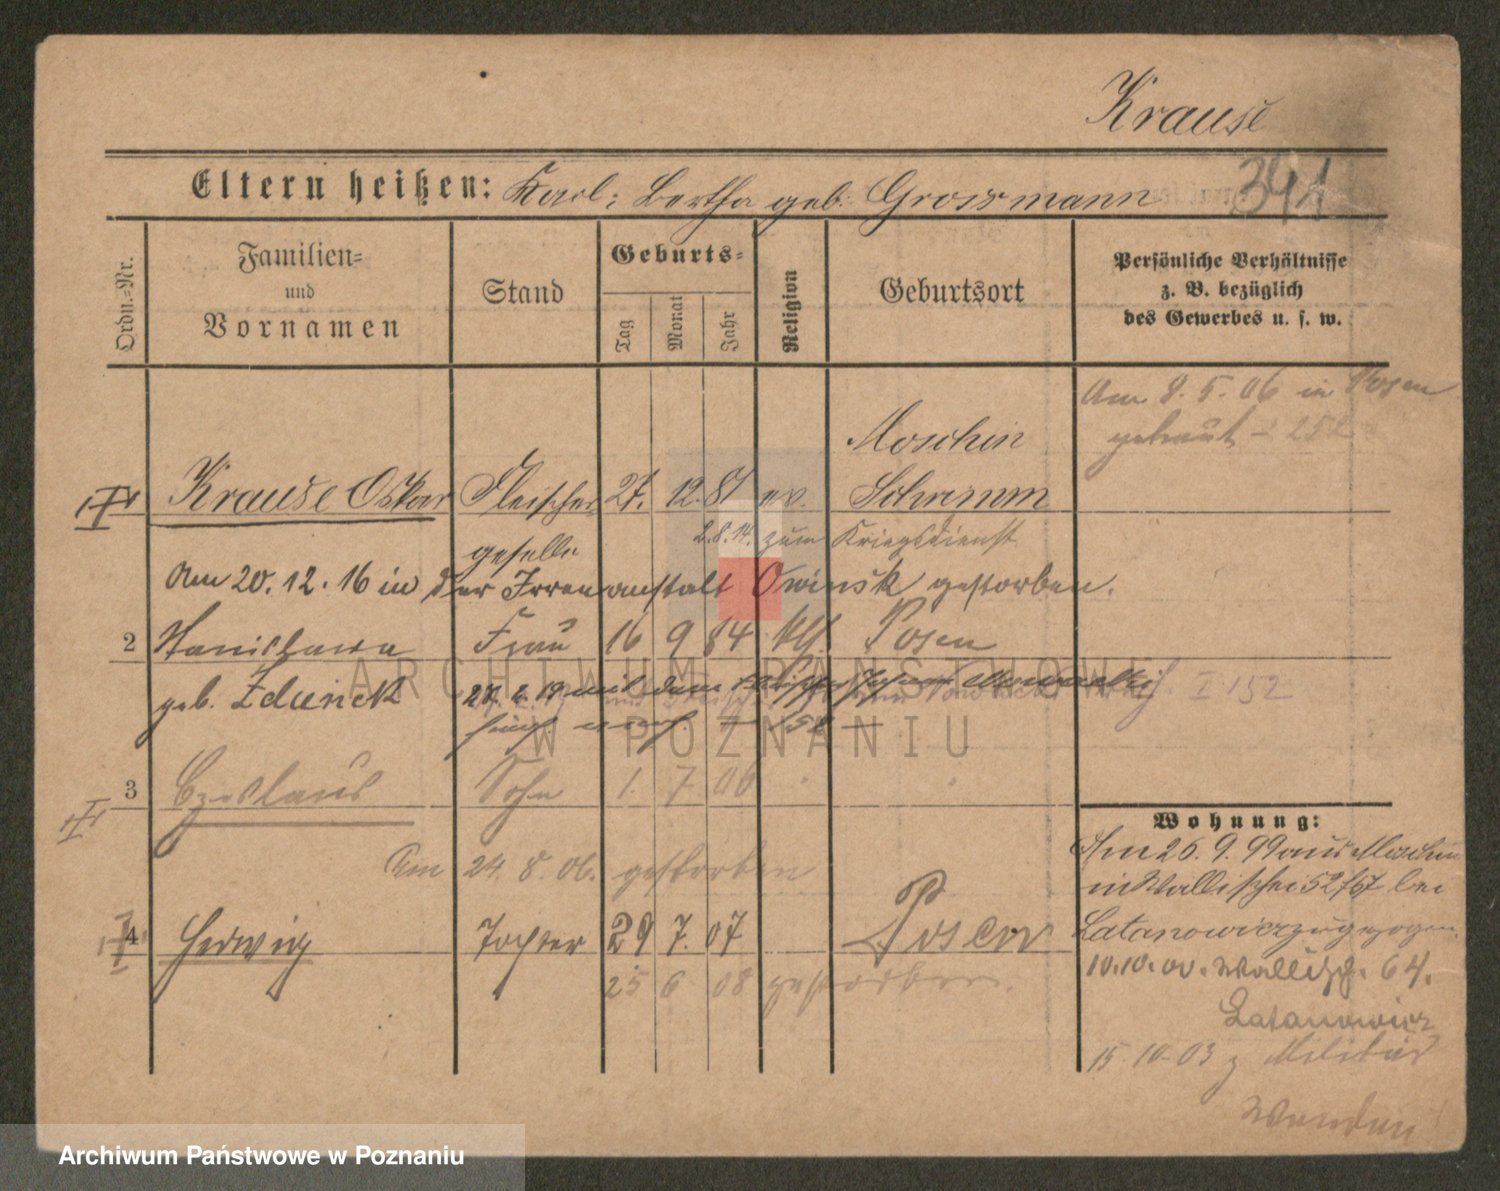 Krause
Eltern heißen: Karl; Bertha geb. Grossmann
394
Ordn.-Nr.
Familien-
und
Vornamen
Stand
Geburts-
Tag
Monat
Jahr
Religion
Geburtsort
Persönliche Verhältnisse
z. B. bezüglich
des Gewerbes u. s. w.
Am 8. 5. 06 in Posen
getraut - 252
Moschin
Krause Oskar Fleischer 27. 12. 81 ev. Schrimm
geselle
2.8.14. zum Kriegsdienst
Am 20. 12. 16 in der Irrenanstalt Owinsk gestorben.
2 Stanislawa Frau 16 9 84 kth. Posen
geb. Zdunek
mit dem
I 152
3 Czeslaus Sohn 1. 7. 06
Am 24. 8. 06. gestorben
4 Hedwig Tochter 29 7. 07 Posen
25 6 08 gestorben.
Wohnung:
Am 26. 9. 99 aus Moschin
in Wallischei 52/67 bei
Latanowicz zugezogen.
10.10.00. Wallisch. 64.
Latanowicz
15. 10. 03 z Militär
ARCHIWUM PAŃSTWOWE
W POZNANIU
Archiwum Państwowe w Poznaniu